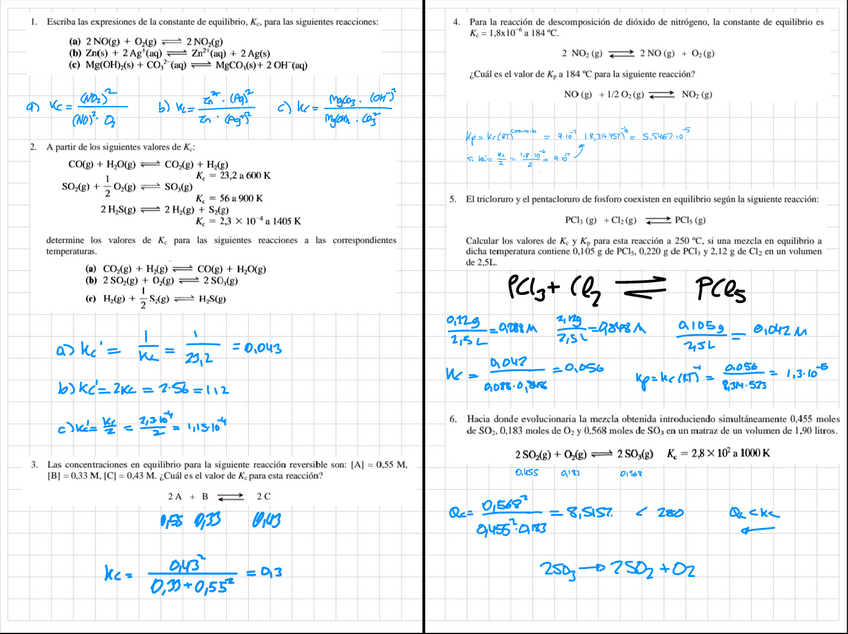 1. Escriba las expresiones de la constante de equilibrio, Kc, para las siguientes reacciones:
(a) 2 NO(g) + O₂(g) ⇌ 2 NO₂(g)
(b) Zn(s) + 2 Ag⁺(aq) ⇌ Zn²⁺(aq) + 2 Ag(s)
(c) Mg(OH)₂(s) + CO₃²⁻(aq) ⇌ MgCO₃(s) + 2 OH⁻(aq)
a) Kc = (NO₂)² / (NO)² · O₂ b) Kc = Zn²⁺ · (Ag)² / Zn · (Ag⁺)² c) Kc =
2. A partir de los siguientes valores de Kc:
CO(g) + H₂O(g) ⇌ CO₂(g) + H₂(g)
Kc = 23,2 a 600 K
SO₂(g) + 1/2 O₂(g) ⇌ SO₃(g)
Kc = 56 a 900 K
2 H₂S(g) ⇌ 2 H₂(g) + S₂(g)
Kc = 2,3 × 10⁻⁴ a 1405 K
determine los valores de Kc para las siguientes reacciones a las correspondientes
temperaturas.
(a) CO₂(g) + H₂(g) ⇌ CO(g) + H₂O(g)
(b) 2 SO₂(g) + O₂(g) ⇌ 2 SO₃(g)
(c) H₂(g) + 1/2 S₂(g) ⇌ H₂S(g)
a) Kc' = 1/Kc = 1/23,2 = 0,043
b) Kc' = 2Kc = 2·56 = 112
c) Kc' = Kc/2 = 2,3·10⁻⁴/2 = 1,15·10⁻⁴
3. Las concentraciones en equilibrio para la siguiente reacción reversible son: [A] = 0,55 M,
[B] = 0,33 M, [C] = 0,43 M. ¿Cuál es el valor de Kc para esta reacción?
2 A + B ⇌ 2 C
0,55 0,33 0,43
Kc = 0,43² / 0,33+0,55² = 0,3
4. Para la reacción de descomposición de dióxido de nitrógeno, la constante de equilibrio es
Kc = 1,8x10⁻⁶ a 184 ºC.
2 NO₂ (g) ⇌ 2 NO (g) + O₂ (g)
¿Cuál es el valor de Kp a 184 ºC para la siguiente reacción?
NO (g) + 1/2 O₂ (g) ⇌ NO₂ (g)
Kp = Kc(RT) = 9·10⁻⁷ = 5,5467·10⁻⁵
si Kc' = Kc/2 = 1,8·10⁻⁶/2 = 9·10⁻⁷
5. El tricloruro y el pentacloruro de fosforo coexisten en equilibrio según la siguiente reacción:
PCl₃ (g) + Cl₂ (g) ⇌ PCl₅ (g)
Calcular los valores de Kc y Kp para esta reacción a 250 ºC, si una mezcla en equilibrio a
dicha temperatura contiene 0,105 g de PCl₅, 0,220 g de PCl₃ y 2,12 g de Cl₂ en un volumen
de 2,5L.
PCl₃ + Cl₂ ⇌ PCl₅
0,22g / 2,5L = 0,088M 2,12g / 2,5L = 0,848M 0,105g / 2,5L = 0,042M
Kc = 0,042 / 0,088·0,848 = 0,056 Kp = Kc (RT)⁻¹ = 0,056 / 8,314·523 = 1,3·10⁻⁵
6. Hacia donde evolucionaria la mezcla obtenida introduciendo simultáneamente 0,455 moles
de SO₂, 0,183 moles de O₂ y 0,568 moles de SO₃ en un matraz de un volumen de 1,90 litros.
2 SO₂(g) + O₂(g) ⇌ 2 SO₃(g) Kc = 2,8 × 10² a 1000 K
0,455 0,183 0,568
Qc = 0,568² / 0,455²·0,183 = 8,5157 < 280 Qc < Kc
←
2SO₃ → 2SO₂ + O₂